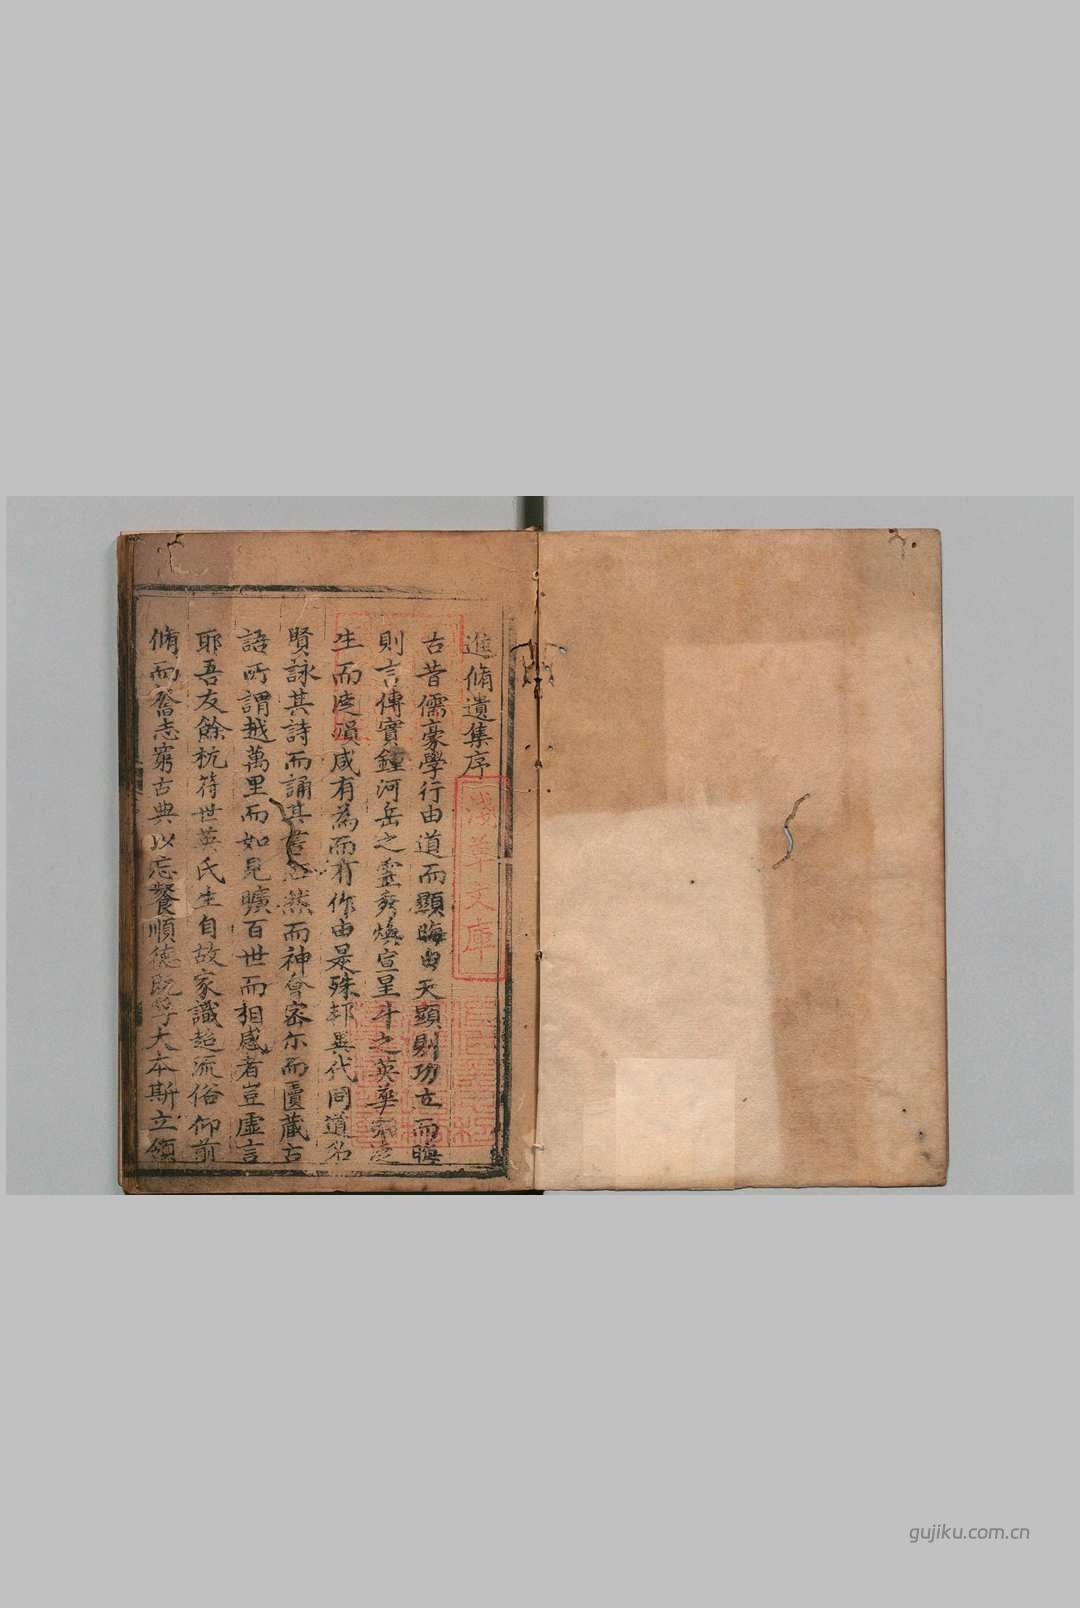 進脩遺集序
古昔儒豪學行由道而顯晦由天顯則功立而晦
則言傳實鍾河岳之靈秀煥宣星斗之英華
生而 咸有為而有作由是殊邦異代同道名
賢詠其詩而誦其書 然而神會密尔而匱藏古
語所謂越萬里而如見曠百世而相感者豈虛言
耶吾友餘杭符世英氏生自故家識超流俗仰前
脩而喬志窮古典以忘餐順德既孚大本斯立領
淺草文庫
gujiku.com.cn